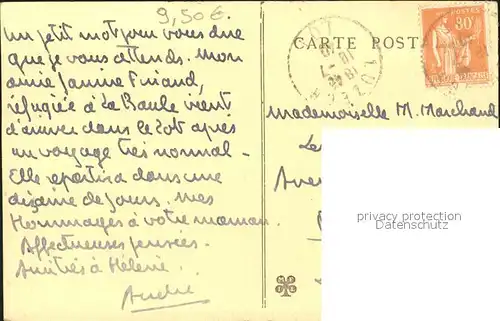 9,50 €.
Un petit mot pour vous dire
que je vous attends. Mon
amie Janine
réfugiée à La Baule vient
d'arriver dans le Lot après
un voyage très normal.
Elle repartira dans une
dizaine de jours. Mes
Hommages à votre maman.
Affectueuses pensées.
Amitiés à Hélène.
André
CARTE POSTA
POSTES
80c
LUZE
LOT
Mademoiselle M. Marchand
Le
Aven
privacy protection
Datenschutz